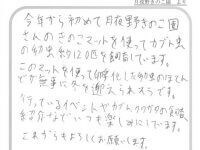 月夜野きのこ園 より
今年から初めて月夜野きのこ園
さんのきのこマットを使ってカブト虫
の幼虫約120匹を飼育しています。
このマットを使って孵化した幼虫のほとん
どが無事に冬を迎えられそうです。
行っているイベントやカブト、クワガタの
紹介などいつも楽しみにしています。
これからもよろしくお願いします。